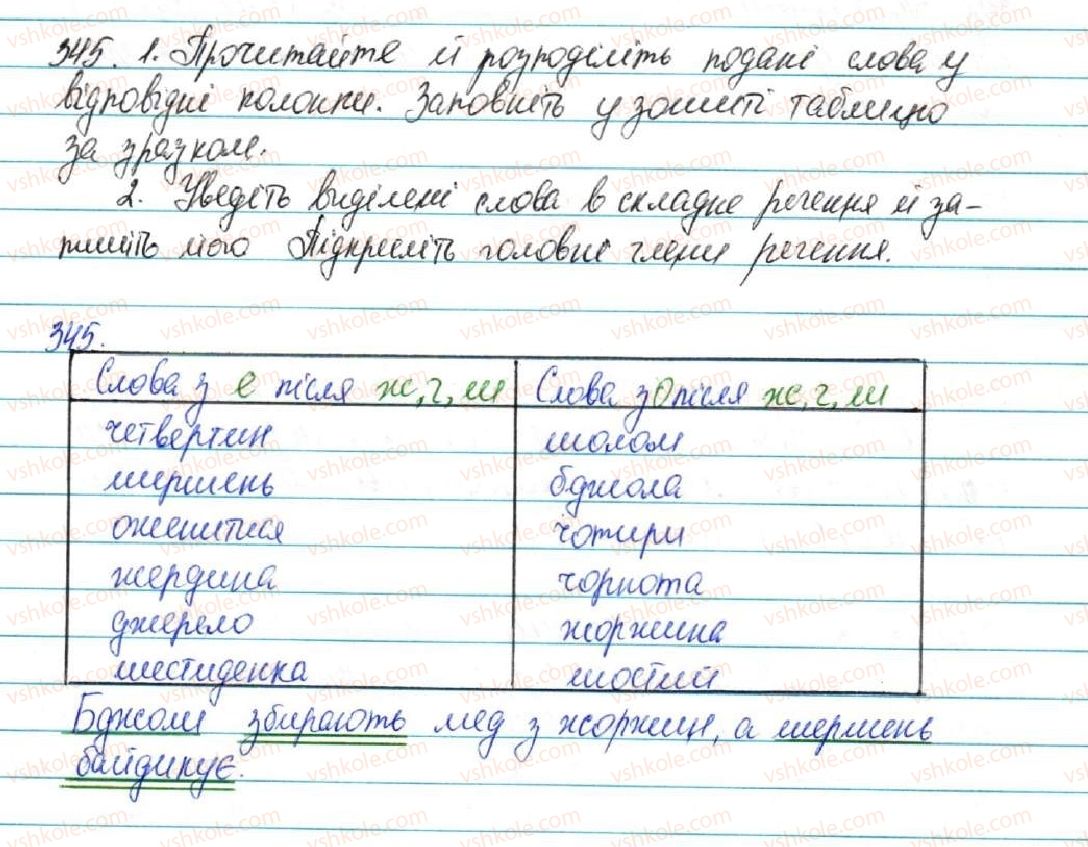 345. 1. Прочитайте й розподіліть подані слова у
відповідні колонки. Заповніть у зошиті таблицю
за зразком.
2. Уведіть виділені слова в складне речення й за-
пишіть його Підкресліть головні члени речення.
345.
Слова з е після ж, ч, ш Слова з о після ж, ч, ш
четвертий шолом
шершень бджола
оженитися чотири
жердина чорнота
джерело жоржина
шестиденка шостий
Бджоли збирають мед з жоржин, а шершень
байдикує.
vshkole.com